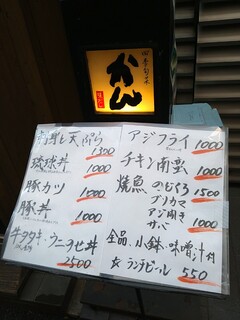 かん
刺身と天ぷら 1300
琉球丼 1000
豚カツ 1500
豚丼 1000
牛タタキ・ウニのせ丼
2500
アジフライ 1000
チキン南蛮 1000
焼魚 のどぐろ 1500
ブリカマ
アジ開き 1000
サバ
全品、小鉢・味噌汁付
ランチビール 550